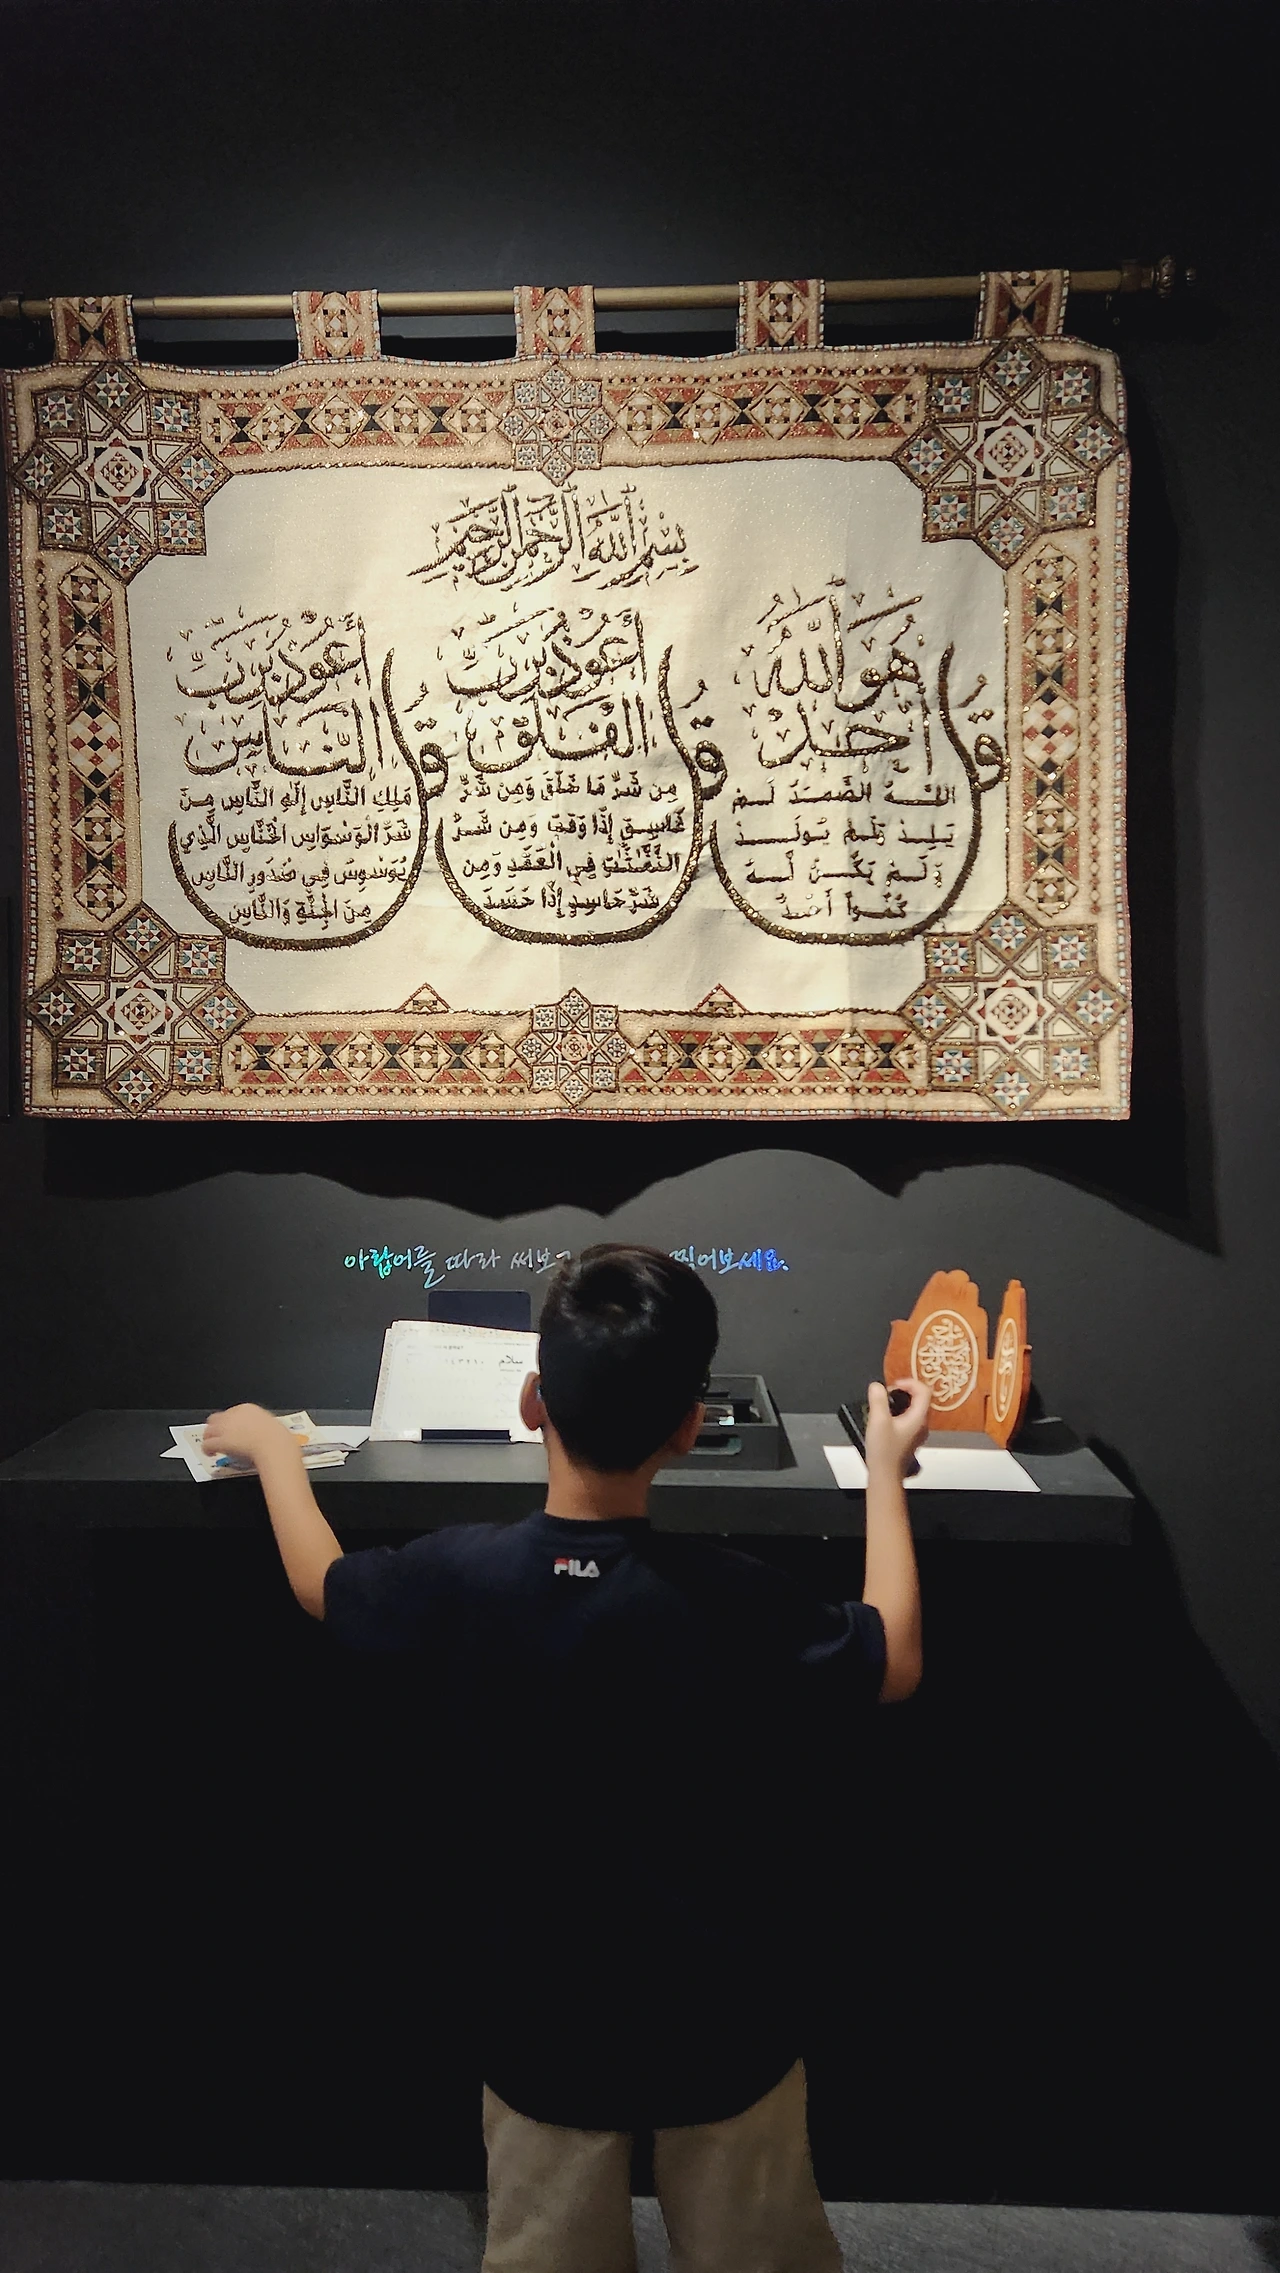 بِسْمِ اللَّهِ الرَّحْمَنِ الرَّحِيمِ
قُلْ هُوَ اللَّهُ
أَحَدٌ
اللَّهُ الصَّمَدُ لَمْ
يَلِدْ وَلَمْ يُولَدْ
وَلَمْ يَكُنْ لَهُ
كُفُواً أَحَدٌ
قُلْ أَعُوذُ بِرَبِّ
الْفَلَقِ
مِن شَرِّ مَا خَلَقَ وَمِن شَرِّ
غَاسِقٍ إِذَا وَقَبَ وَمِن شَرِّ
النَّفَّاثَاتِ فِي الْعُقَدِ وَمِن
شَرِّ حَاسِدٍ إِذَا حَسَدَ
قُلْ أَعُوذُ بِرَبِّ
النَّاسِ
مَلِكِ النَّاسِ إِلَهِ النَّاسِ مِنْ
شَرِّ الْوَسْوَاسِ الْخَنَّاسِ الَّذِي
يُوَسْوِسُ فِي صُدُورِ النَّاسِ
مِنَ الْجِنَّةِ وَالنَّاسِ
아랍어를 따라 써보 찍어보세요.
سلام
FILA